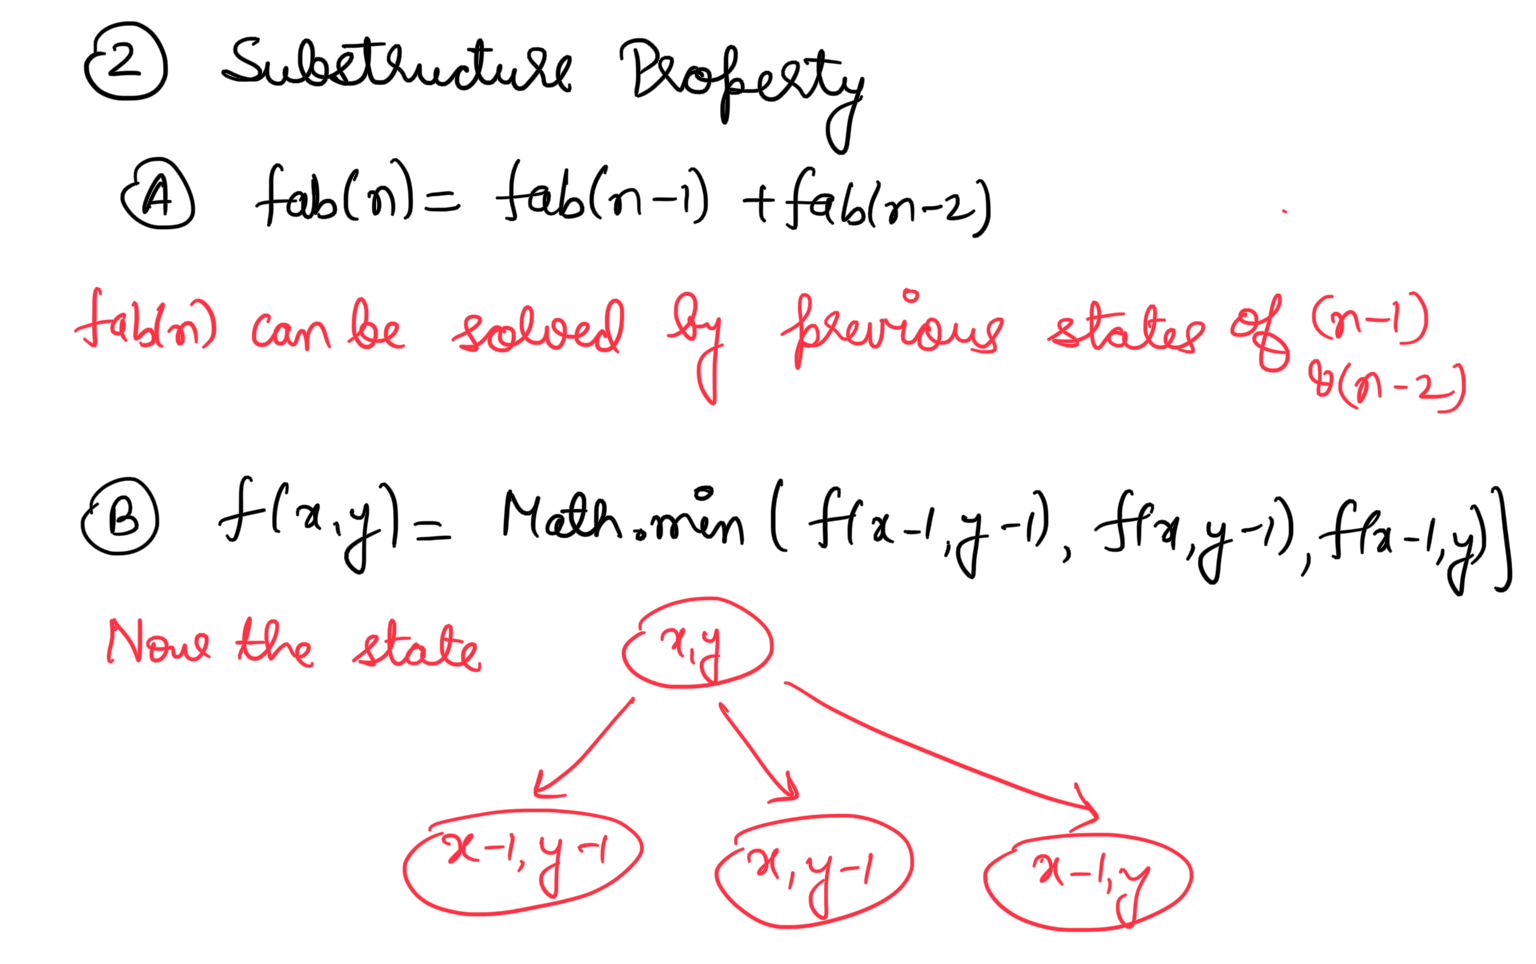 ② Substructure Property
Ⓐ fab(n) = fab(n-1) + fab(n-2)
fab(n) can be solved by previous states of (n-1)
&(n-2)
Ⓑ f(x,y) = Math.min ( f(x-1,y-1), f(x,y-1), f(x-1,y)]
Now the state x,y
x-1, y-1 x, y-1 x-1, y